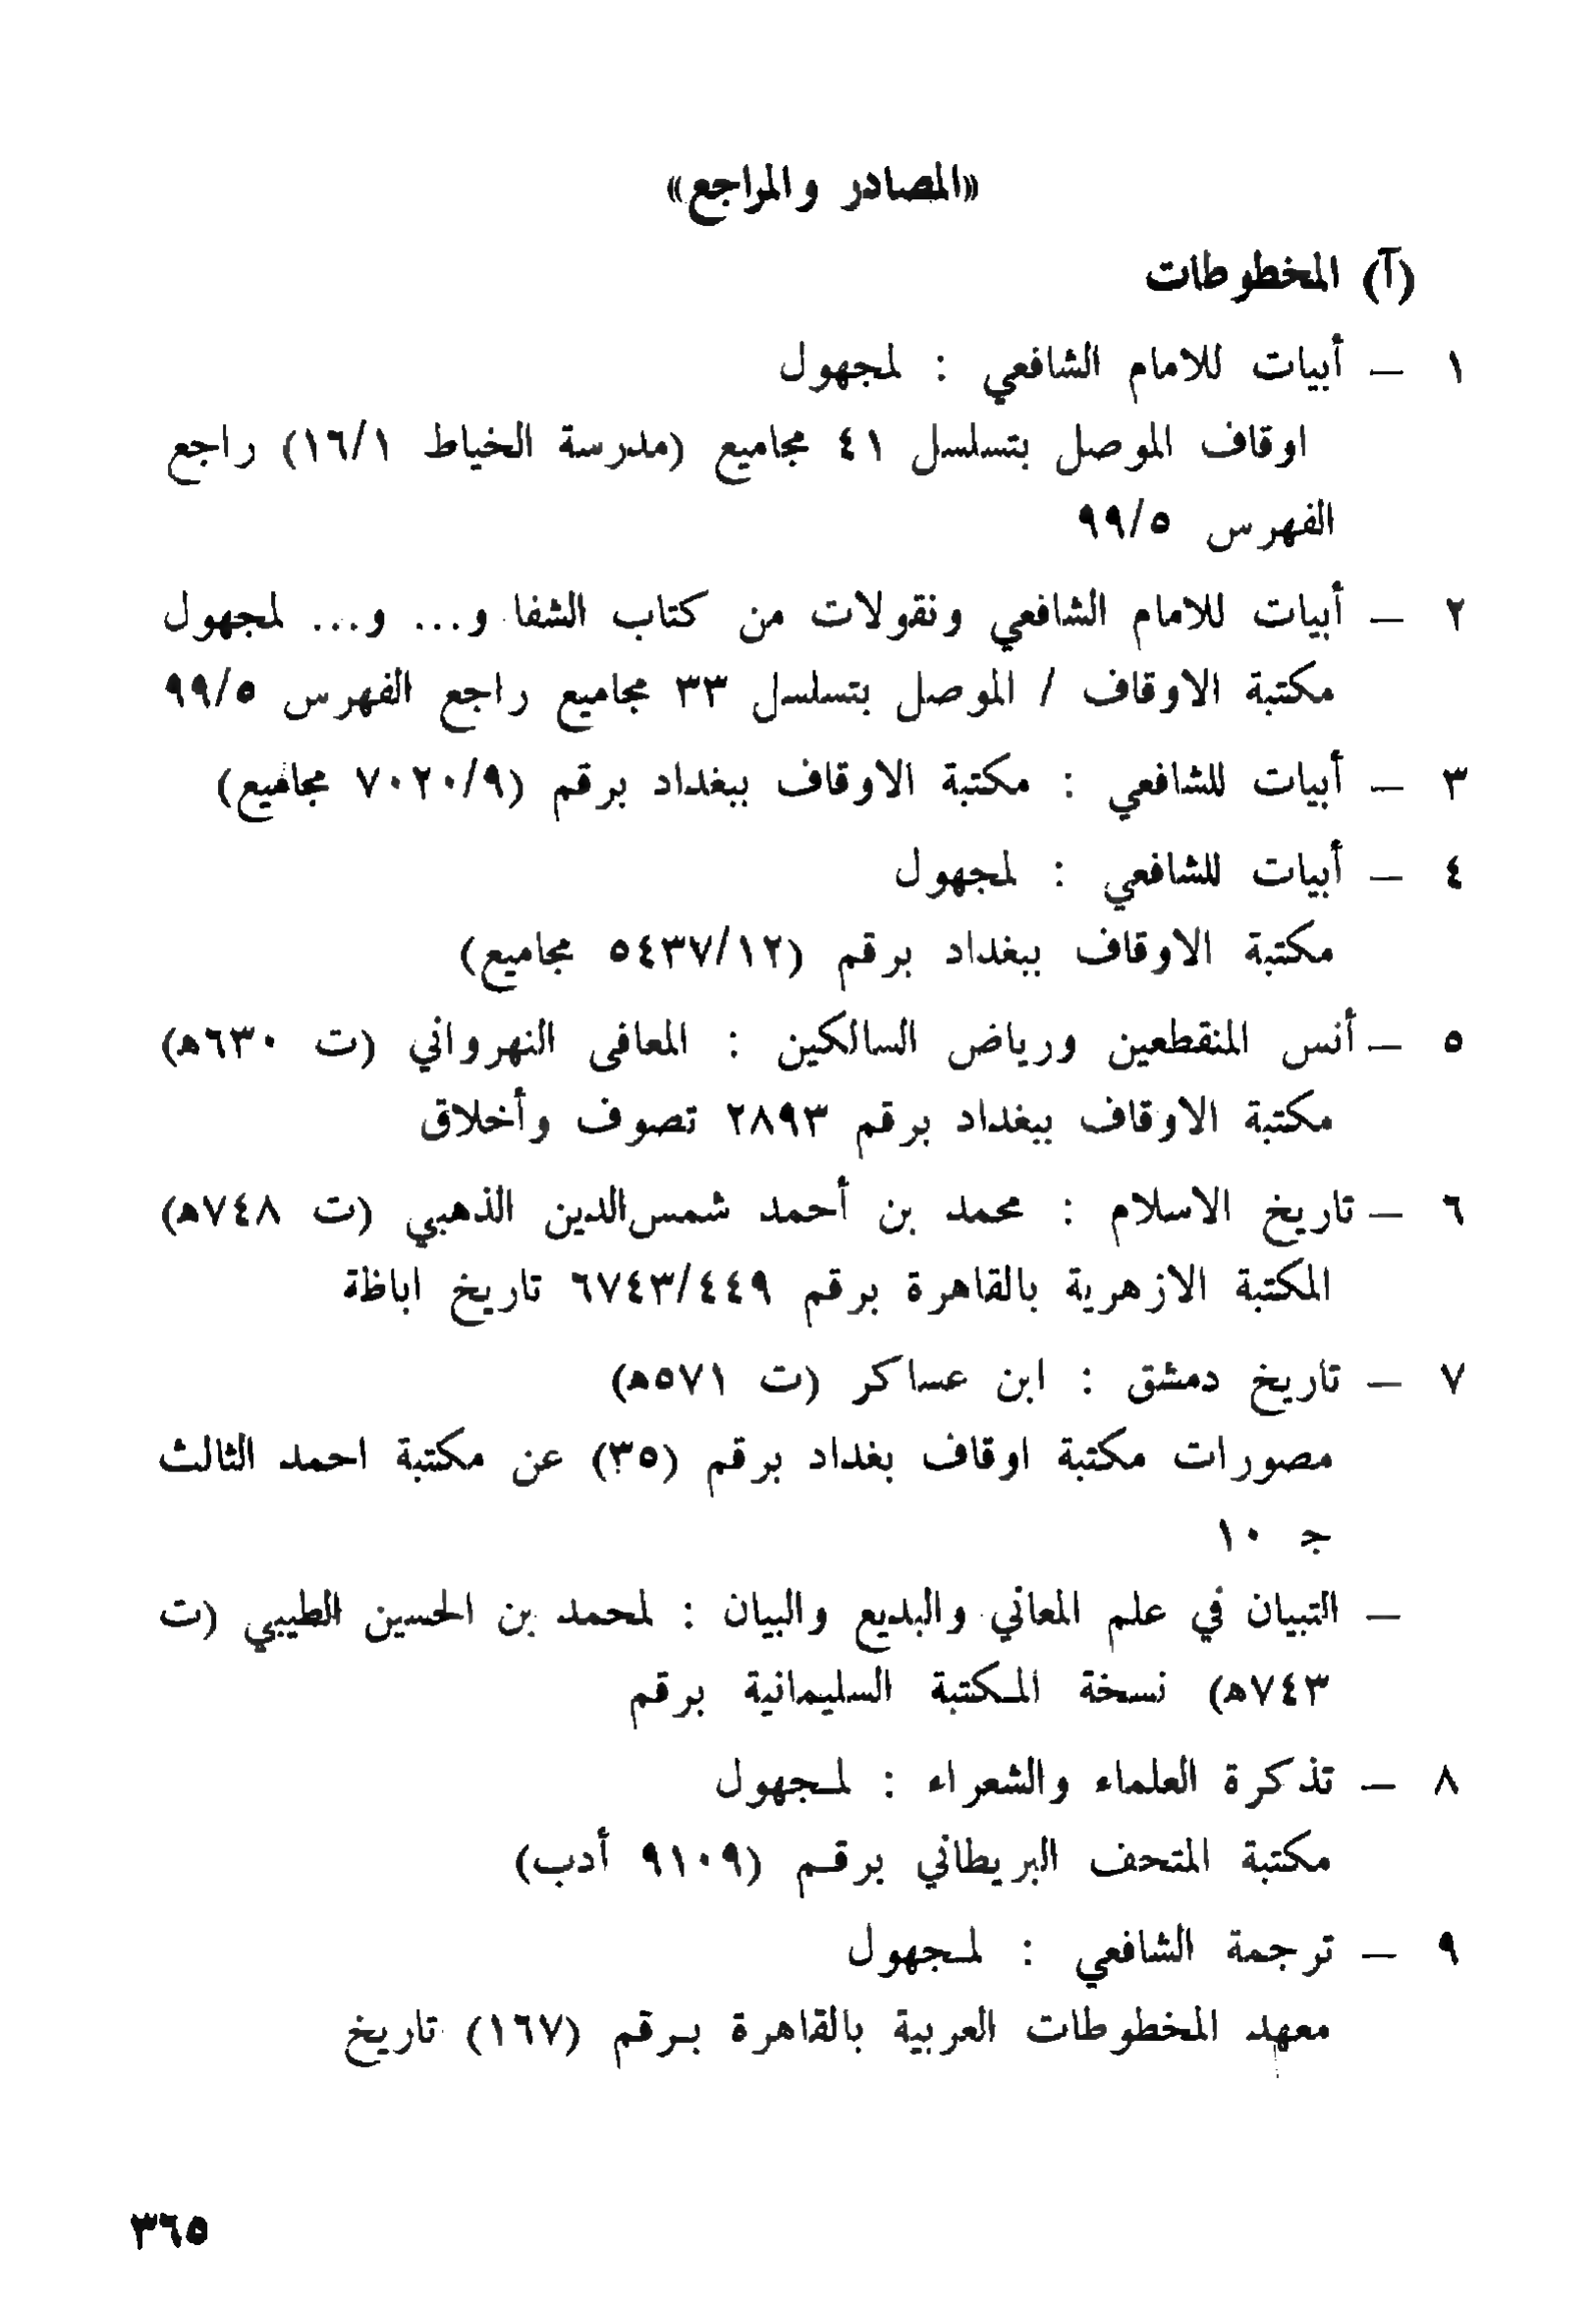 «المصادر والمراجع»
(آ) المخطوطات
١ — أبيات للامام الشافعي : لمجهول
اوقاف الموصل بتسلسل ٤١ مجاميع (مدرسة الخياط ١٦/١) راجع
الفهرس ٩٩/٥
٢ — أبيات للامام الشافعي ونقولات من كتاب الشفا و... و... لمجهول
مكتبة الاوقاف / الموصل بتسلسل ٣٣ مجاميع راجع الفهرس ٩٩/٥
٣ — أبيات للشافعي : مكتبة الاوقاف ببغداد برقم (٧٠٢٠/٩ مجاميع)
٤ — أبيات للشافعي : لمجهول
مكتبة الاوقاف ببغداد برقم (٥٤٣٧/١٢ مجاميع)
٥ — أنس المنقطعين ورياض السالكين : المعافى النهرواني (ت ٦٣٠هـ)
مكتبة الاوقاف ببغداد برقم ٢٨٩٣ تصوف وأخلاق
٦ — تاريخ الاسلام : محمد بن أحمد شمس‌الدين الذهبي (ت ٧٤٨هـ)
المكتبة الازهرية بالقاهرة برقم ٦٧٤٣/٤٤٩ تاريخ اباظة
٧ — تاريخ دمشق : ابن عساكر (ت ٥٧١هـ)
مصورات مكتبة اوقاف بغداد برقم (٣٥) عن مكتبة احمد الثالث
جـ ١٠
— التبيان في علم المعاني والبديع والبيان : لمحمد بن الحسين الطيبي (ت
٧٤٣هـ) نسخة المكتبة السليمانية برقم
٨ — تذكرة العلماء والشعراء : لمجهول
مكتبة المتحف البريطاني برقم (٩١٠٩ أدب)
٩ — ترجمة الشافعي : لمجهول
معهد المخطوطات العربية بالقاهرة برقم (١٦٧) تاريخ
٣٦٥